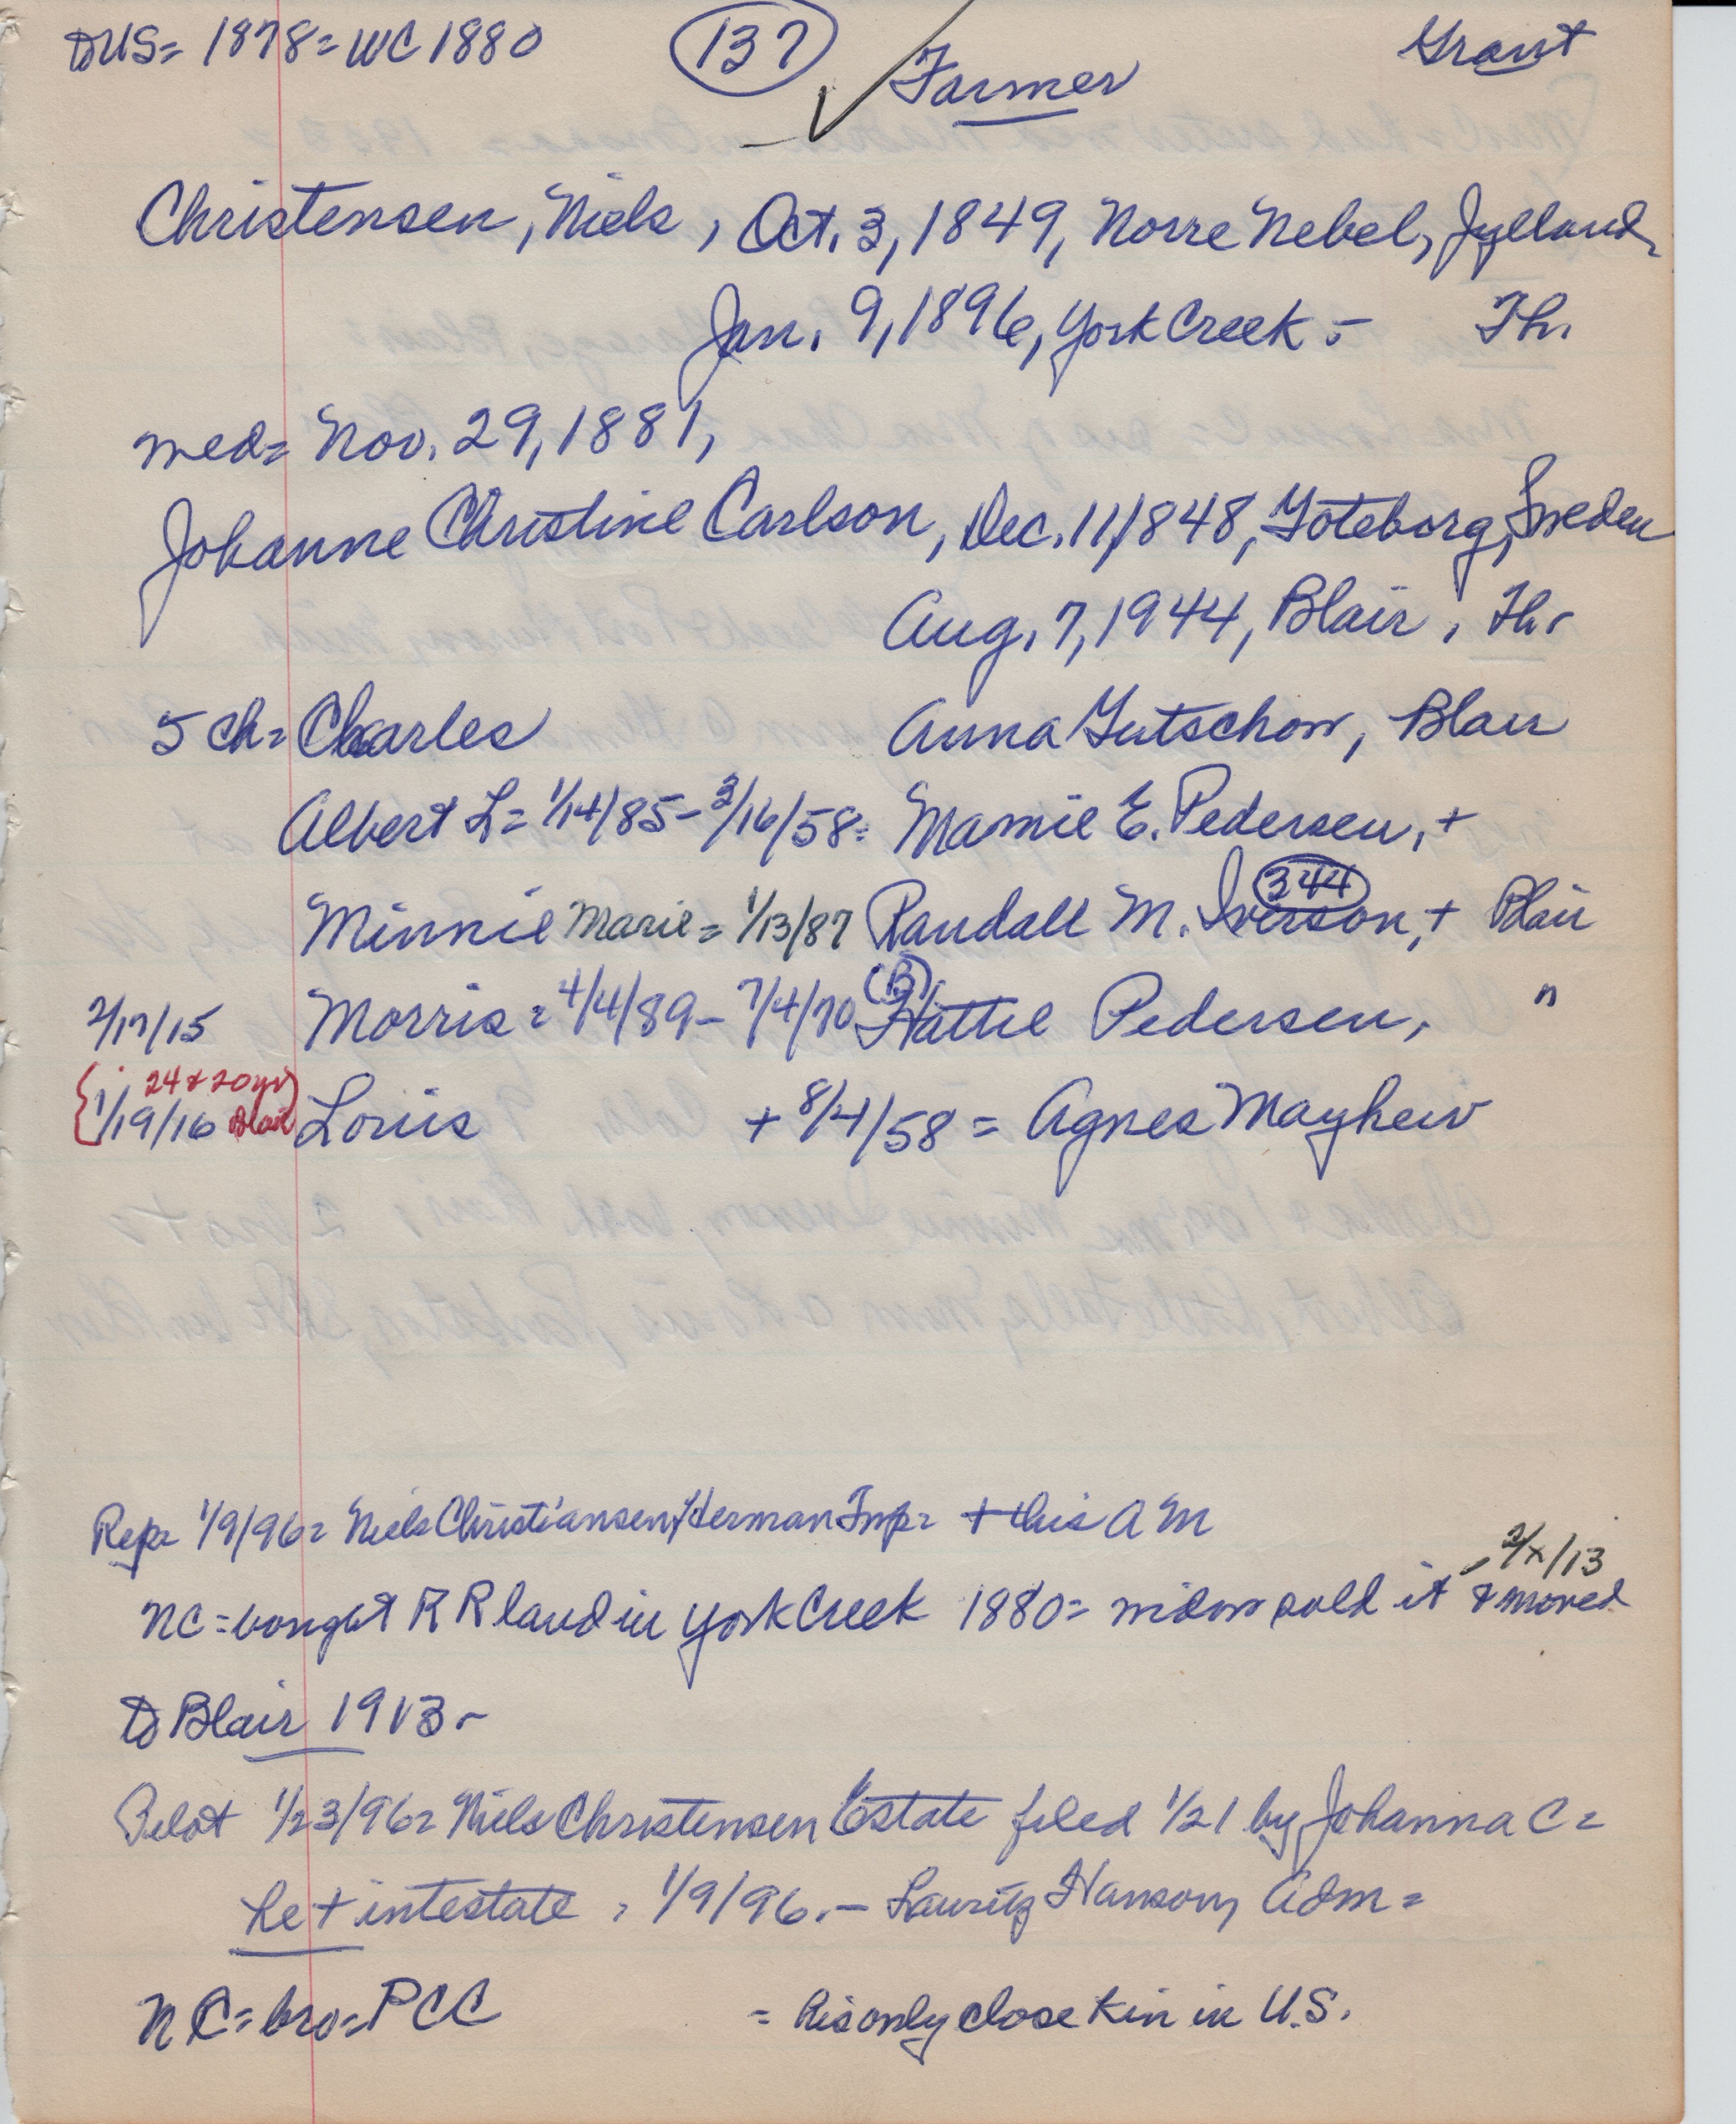 to US = 1878 = WC 1880 (137) Grant
Farmer
Christensen, Niels, Oct. 3, 1849, Norre Nebel, Jylland,
Jan. 9, 1896, York Creek - Th.
med = Nov. 29, 1881,
Johanne Christine Carlson, Dec. 11, 1848, Goteborg, Sweden
Aug. 7, 1944, Blair, Th.
5 ch = Charles Anna Gutschow, Blair
Albert L = 1/14/85 - 3/16/58 = Mamie E. Pedersen, +
344
Minnie Marie = 1/13/87 Randall M. Iverson, + Blair
(B)
2/17/15 Morris = 4/4/89 - 7/4/70 Hattie Pedersen, "
24 & 20 yr
1/19/16 Blair Louis + 8/4/58 = Agnes Mayhew
Rep = 1/9/96 = Niels Christiansen, Herman Twp = + this A M
2/x/13
NC = bought R R land in York Creek 1880 = widow sold it & moved
to Blair 1913 -
Pilot 1/23/96 = Niels Christensen Estate filed 1/21 by Johanna C =
he + intestate, 1/9/96. - Lauritz Hanson, Adm =
N C = bro = P C C = his only close kin in U.S.